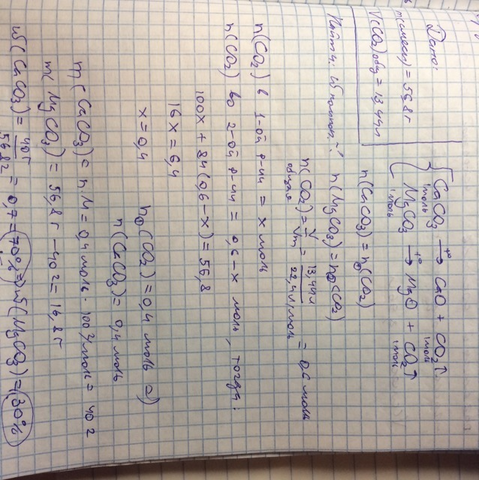 Дано:
m(смеси) = 56,8г
V(CO₂)общ = 13,44л
Найти: ω комп. - ?
CaCO₃ →t° CaO + CO₂↑
1моль 1моль
MgCO₃ →t° MgO + CO₂↑
1моль 1моль
n(CaCO₃) = n①(CO₂)
n(MgCO₃) = n②(CO₂)
n(CO₂)общее = V/Vm = 13,44л/22,4л/моль = 0,6 моль
n(CO₂) в 1-ой р-ии = x моль
n(CO₂) во 2-ой р-ии = 0,6-x моль, тогда:
100x + 84(0,6-x) = 56,8
16x = 6,4
x = 0,4
n①(CO₂) = 0,4 моль ⇒
n(CaCO₃) = 0,4 моль
m(CaCO₃) = n·M = 0,4 моль · 100г/моль = 40г
m(MgCO₃) = 56,8г - 40г = 16,8г
ω(CaCO₃) = 40г/56,8г = 0,7 = 70% ⇒ ω(MgCO₃) = 30%